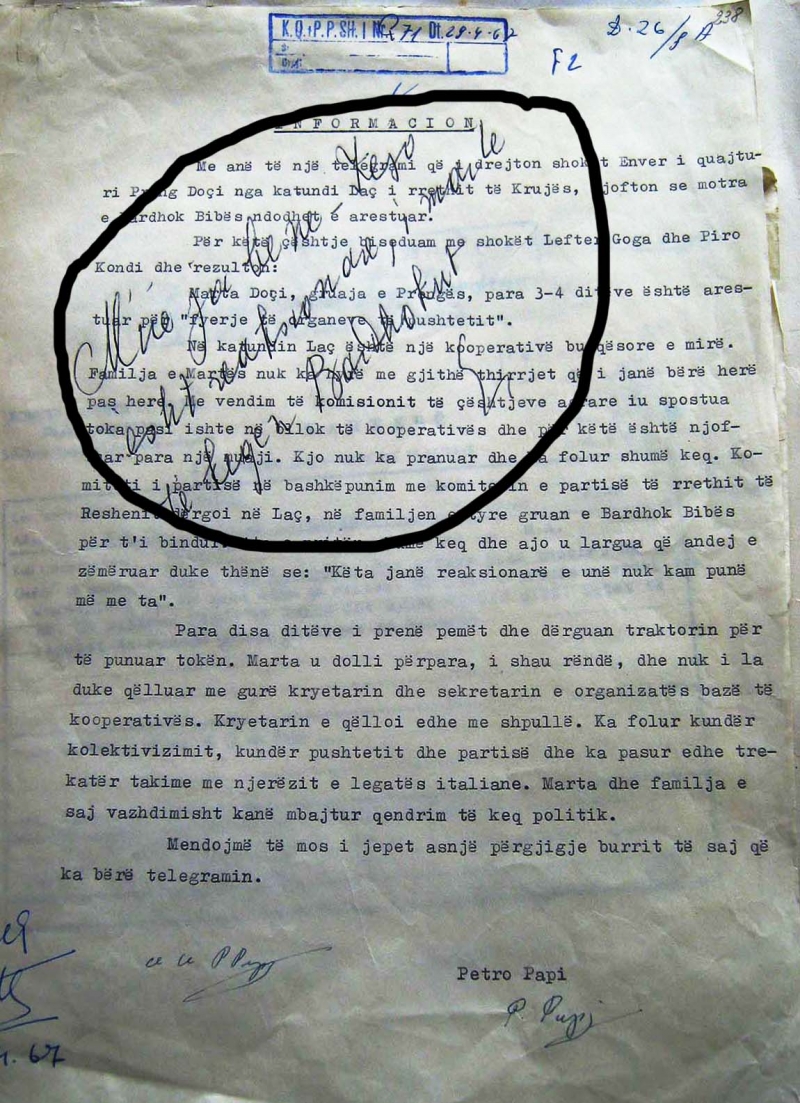 K.Q. i P.P.SH. | Nr 271 Dt. 28.4.67
D.26/8A
238
F2
INFORMACION
Me anë të një telegrami që i drejton shokut Enver i quajtu-
ri Preng Doçi nga katundi Laç i rrethit të Krujës, njofton se motra
e Bardhok Bibës ndodhet e arestuar.
Për këtë çështje biseduam me shokët Lefter Goga dhe Piro
Kondi dhe rezulton:
Marta Doçi, gruaja e Prengës, para 3-4 ditëve është ares-
tuar për "fyerje të organeve të pushtetit".
Në katundin Laç është një kooperativë bujqësore e mirë.
Familja e Martës nuk ka hyrë me gjithë thirrjet që i janë bërë herë
pas here. Me vendim të komisionit të çështjeve agrare iu spostua
toka pasi ishte në bllok të kooperativës dhe për këtë është njof-
tuar para një muaji. Kjo nuk ka pranuar dhe ka folur shumë keq. Ko-
miteti i partisë në bashkëpunim me komitetin e partisë të rrethit të
Reshenit dërgoi në Laç, në familjen e tyre gruan e Bardhok Bibës
për t'i bindur keq dhe ajo u largua që andej e
zëmëruar duke thënë se: "Këta janë reaksionarë e unë nuk kam punë
më me ta".
Para disa ditëve i prenë pemët dhe dërguan traktorin për
të punuar tokën. Marta u dolli përpara, i shau rëndë, dhe nuk i la
duke qëlluar me gurë kryetarin dhe sekretarin e organizatës bazë të
kooperativës. Kryetarin e qëlloi edhe me shpullë. Ka folur kundër
kolektivizimit, kundër pushtetit dhe partisë dhe ka pasur edhe tre-
katër takime me njerëzit e legatës italiane. Marta dhe familja e
saj vazhdimisht kanë mbajtur qendrim të keq politik.
Mendojmë të mos i jepet asnjë përgjigje burrit të saj që
ka bërë telegramin.
Petro Papi
P. Papi
67